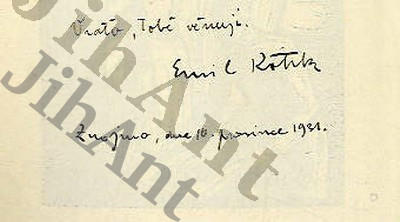 Vráťo, Tobě věnuji.
Emil Kotrba
Znojmo, dne 16. prosince 1931.
JihAnt
JihAnt